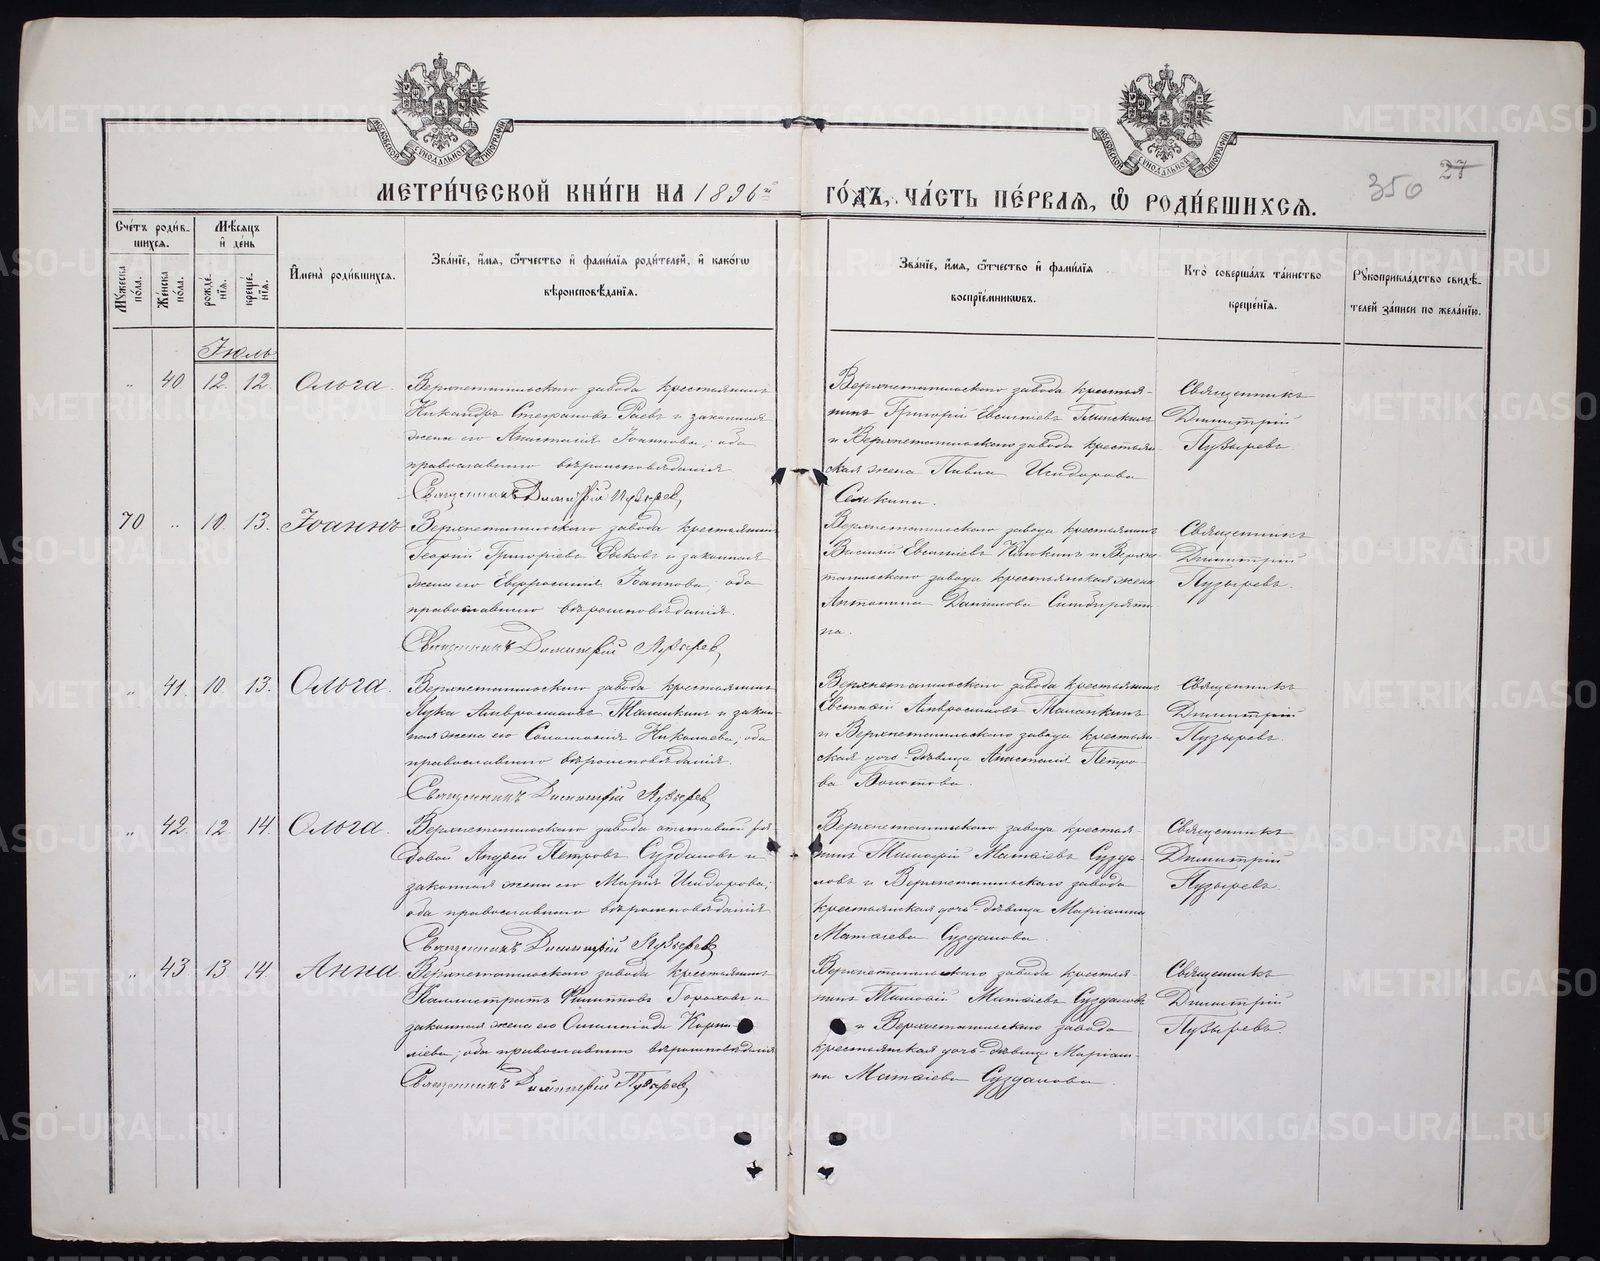 МЕТРИ́ЧЕСКОЙ КНИ́ГИ НА 1896й ГО́ДЪ, ЧА́СТЬ ПЕ́РВАЯ, Ѽ РОДИ́ВШИХСЯ.
350 27
Сче́тъ роди́в-
шихся.
Мѣсяцъ
и де́нь
Му́жеска
по́ла.
Же́нска
по́ла.
рожде́-
нїя.
креще́-
нїя.
И҆мена̀ роди́вшихся.
Зва́нїе, и҆́мя, ѻ҆́тчество и҆ фами́лїя роди́телей, и҆ како́гѡ
вѣроисповѣ́данїя.
Зва́нїе, и҆́мя, ѻ҆́тчество и҆ фами́лїя
воспрїе́мниковъ.
Кто̀ соверша́лъ та́инство
креще́нїя.
Рꙋкоприкла́дство свидѣ́-
телей за́писи по жела́нїю.
Іюль
„ 40 12. 12. Ольга.
Верхнетагильскаго завода крестьянинъ
Никандръ Стефановъ Раевъ и законная
жена его Анастасія Іоаннова; оба
православнаго вѣроисповѣданія
Священникъ Димитрій Пузыревъ
Верхнетагильскаго завода крестья-
нинъ Григорій Евсигнѣевъ Глинскихъ
и Верхнетагильскаго завода крестьян-
ская жена Павла Исидорова
Селькина.
Священникъ
Димитрій
Пузыревъ.
70 „ 10. 13. Іоаннъ
Верхнетагильскаго завода крестьянинъ
Георгій Григоріевъ Рыковъ и законная
жена его Евфросинія Іоаннова; оба
православнаго вѣроисповѣданія.
Священникъ Димитрій Пузыревъ
Верхнетагильскаго завода крестьянинъ
Василій Евсигнѣевъ Клюкинъ и Верхне-
тагильскаго завода крестьянская жена
Антонина Даніилова Симбиряти-
на.
Священникъ
Димитрій
Пузыревъ.
„ 41. 10. 13. Ольга.
Верхнетагильскаго завода крестьянинъ
Лука Амвросіновъ Талапкинъ и закон-
ная жена его Соломонія Николаева; оба
православнаго вѣроисповѣданія.
Священникъ Димитрій Пузыревъ
Верхнетагильскаго завода крестьянинъ
Амвросіновъ Талапкинъ
и Верхнетагильскаго завода крестьян-
ская дочь-дѣвица Анастасія Петро-
ва
Священникъ
Димитрій
Пузыревъ.
„ 42. 12 14. Ольга.
Верхнетагильскаго завода отставной ря-
довой Андрей Петровъ Суздаловъ и
законная жена его Марія Исидорова;
оба православнаго вѣроисповѣданія
Священникъ Димитрій Пузыревъ
Верхнетагильскаго завода крестья-
нинъ Тимофей Матѳіевъ Сузда-
ловъ и Верхнетагильскаго завода
крестьянская дочь-дѣвица Маріанна
Матѳіева Суздалова.
Священникъ
Димитрій
Пузыревъ.
„ 43 13 14. Анна.
Верхнетагильскаго завода крестьянинъ
Каллистратъ Филипповъ Гороховъ и
законная жена его Олимпіада Корни-
ліева; оба православнаго вѣроисповѣданія
Священникъ Димитрій Пузыревъ
Верхнетагильскаго завода крестья-
нинъ Тимофей Матѳіевъ Суздаловъ
и Верхнетагильскаго завода
крестьянская дочь-дѣвица Маріан-
на Матѳіева Суздалова.
Священникъ
Димитрій
Пузыревъ.